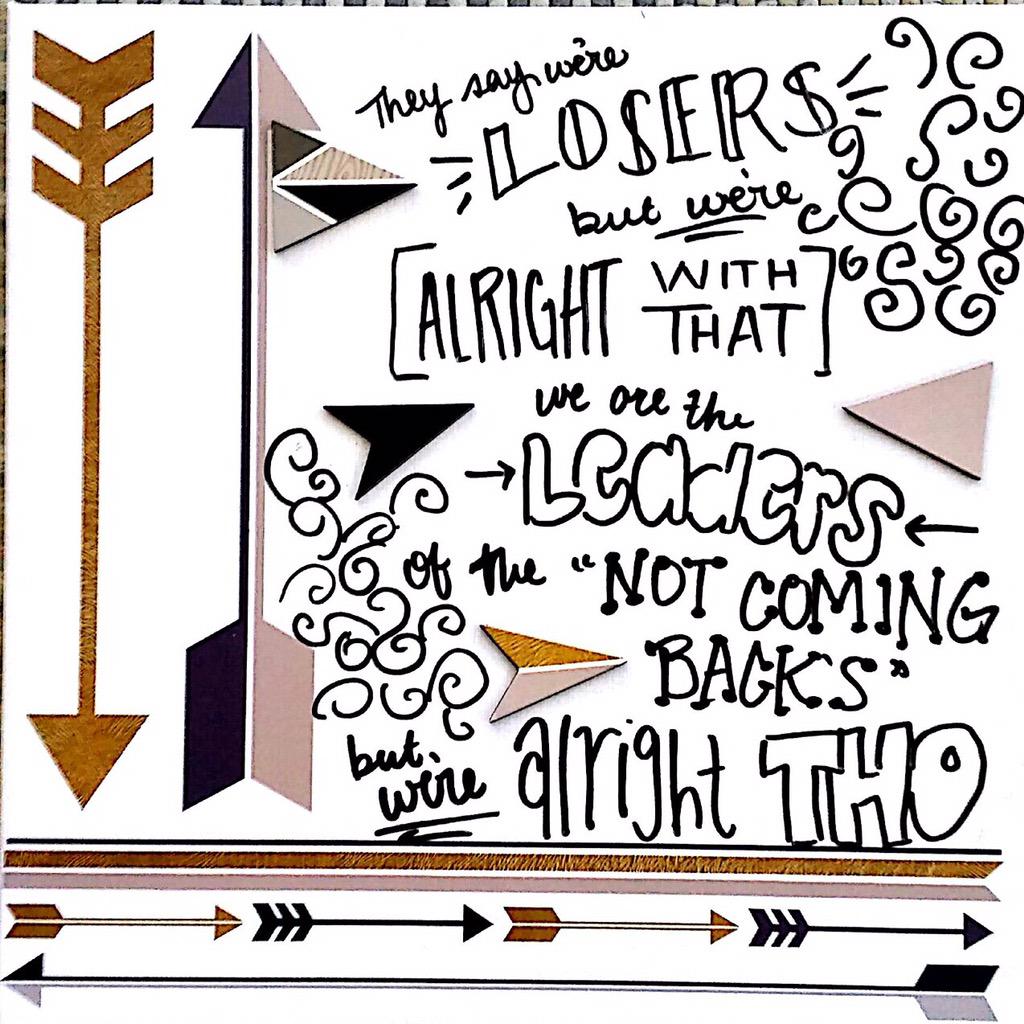 They say we're
LOSERS
but we're
[ALRIGHT WITH
THAT]
we are the
LeCKIers
of the "NOT COMING
BACKS"
but we're alright THO